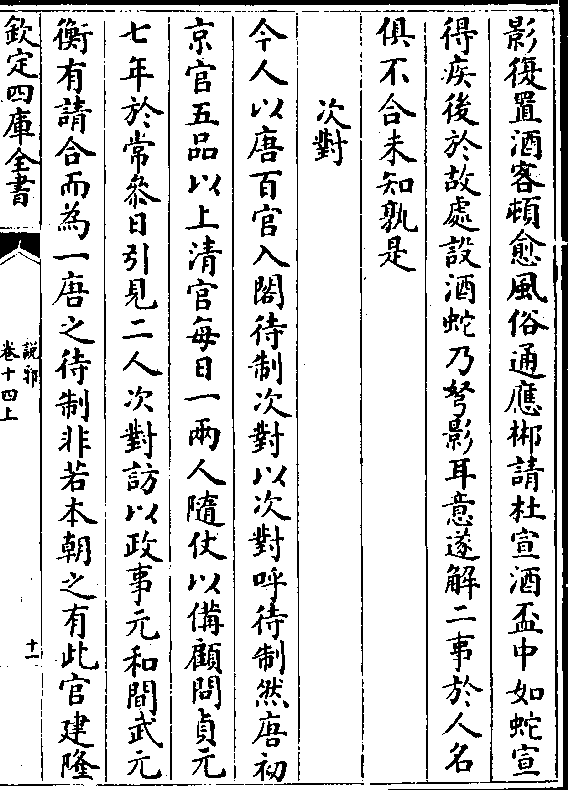 影復置酒客頓愈風俗通應郴請杜宣酒盃中如蛇宣
得疾後於故處設酒蛇乃弩影耳意遂解二事於人名
俱不合未知孰是
次對
今人以唐百官入閣待制次對以次對呼待制然唐初
京官五品以上清官每日一兩人隨仗以備顧問貞元
七年於常叅日引見二人次對訪以政事元和間武元
衡有請合而為一唐之待制非若本朝之有此官建隆
欽定四庫全書
說郛
卷十四上
十一